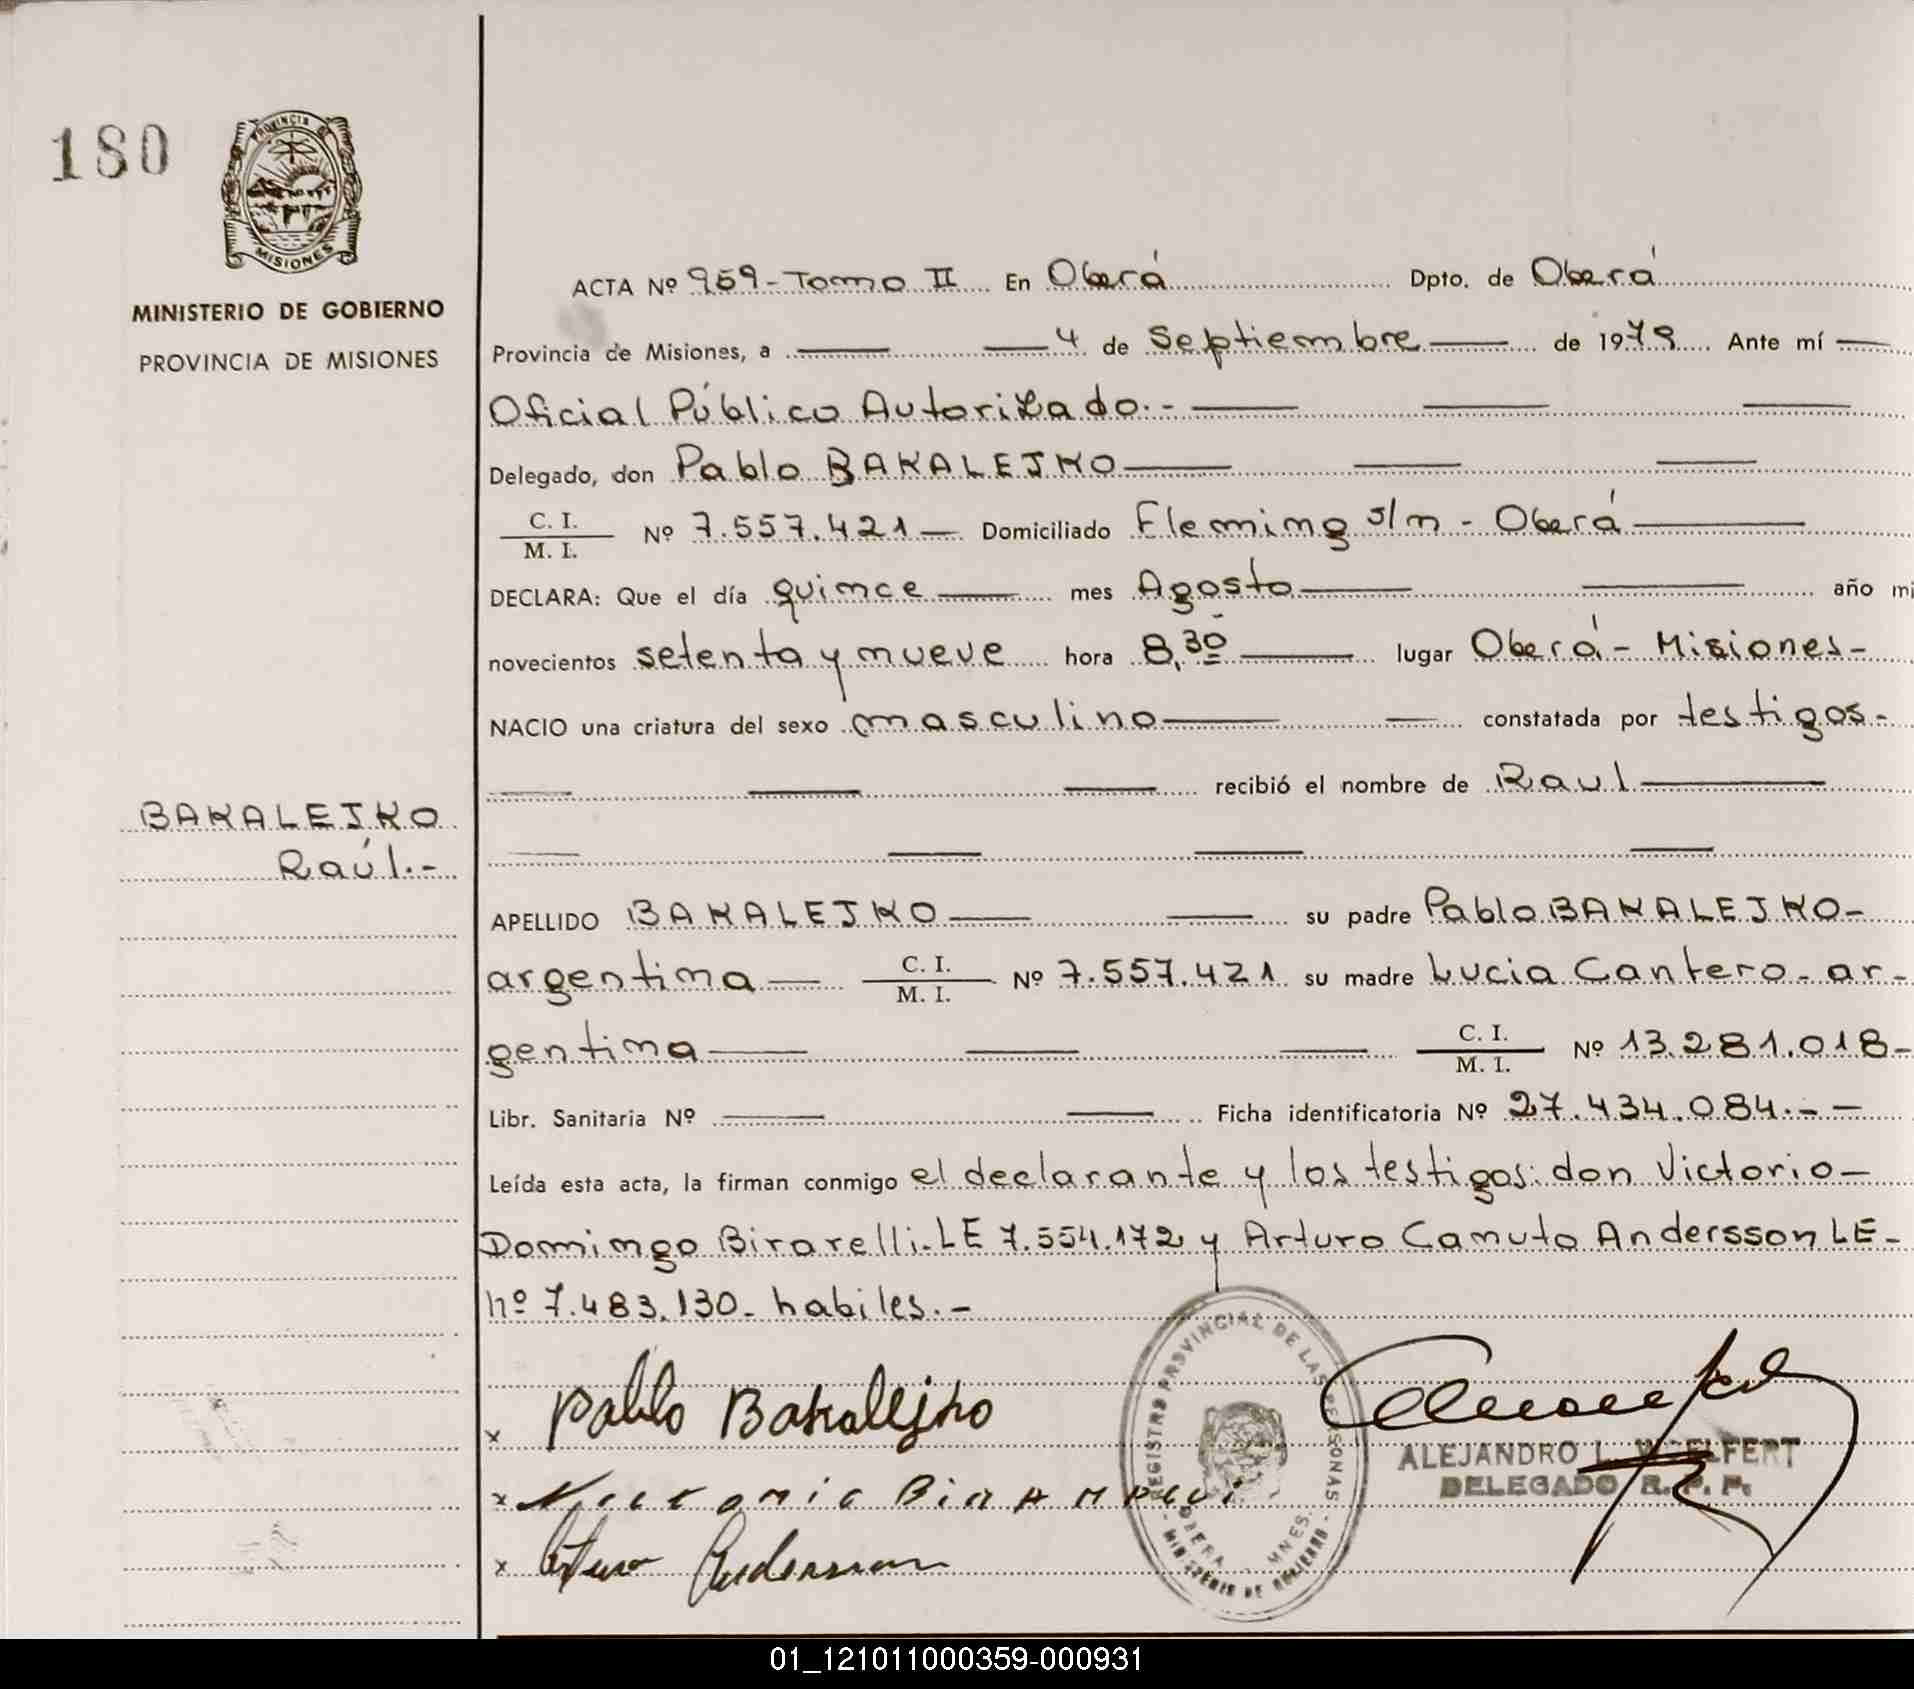 180
PROVINCIA DE
MISIONES
MINISTERIO DE GOBIERNO
PROVINCIA DE MISIONES
ACTA Nº 959 - Tomo II En Oberá Dpto. de Oberá
Provincia de Misiones, a 4 de Septiembre de 1979 Ante mí
Oficial Público Autorizado.-
Delegado, don Pablo BAKALEJKO
C. I.
M. I. Nº 7.557.421 Domiciliado Fleming s/n - Oberá
DECLARA: Que el día quince mes Agosto año mi
novecientos setenta y nueve hora 8,30 lugar Oberá - Misiones-
NACIO una criatura del sexo masculino constatada por testigos-
recibió el nombre de Raul
BAKALEJKO
Raúl.-
APELLIDO BAKALEJKO su padre Pablo BAKALEJKO-
argentina C. I.
M. I. Nº 7.557.421 su madre Lucia Cantero - ar-
gentina C. I.
M. I. Nº 13.281.018-
Libr. Sanitaria Nº Ficha identificatoria Nº 27.434.084.--
Leída esta acta, la firman conmigo el declarante y los testigos: don Victorio-
Domingo Birarelli - LE 7.554.172 y Arturo Camuto Andersson LE-
nº 7.483.130 - habiles.-
x Pablo Bakalejko
x
x Arturo Andersson
REGISTRO PROVINCIAL DE LAS PERSONAS
OBERA MNES.
- MINISTERIO DE GOBIERNO -
ALEJANDRO L. WOELFERT
DELEGADO R. P. P.
01_121011000359-000931